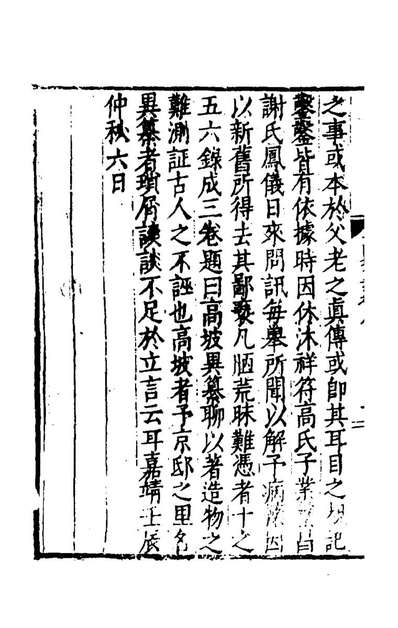 之事或本於父老之真傳或即其耳目之記
鑿鑿皆有依據時因休沐祥符高氏子業
謝氏鳳儀日來問訊每舉所聞以解予病因
以新舊所得去其鄙褻凡陋荒昧難憑者十之
五六錄成三卷題曰高坡異纂聊以著造物之
難測証古人之不誣也高坡者予京邸之里名
異纂者瑣屑談談不足於立言云耳嘉靖壬辰
仲秋六日